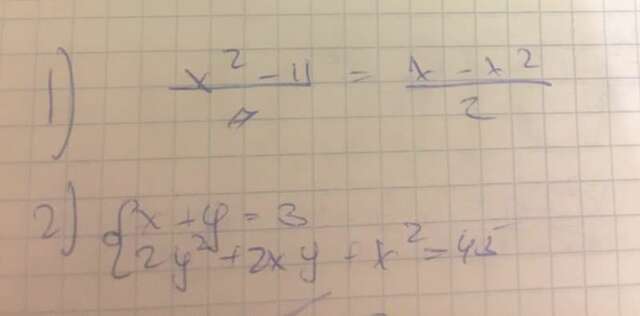 1) (x² - 11)/7 = (x - x²)/2
2) { x + y = 3
2y² + 2xy + x² = 45